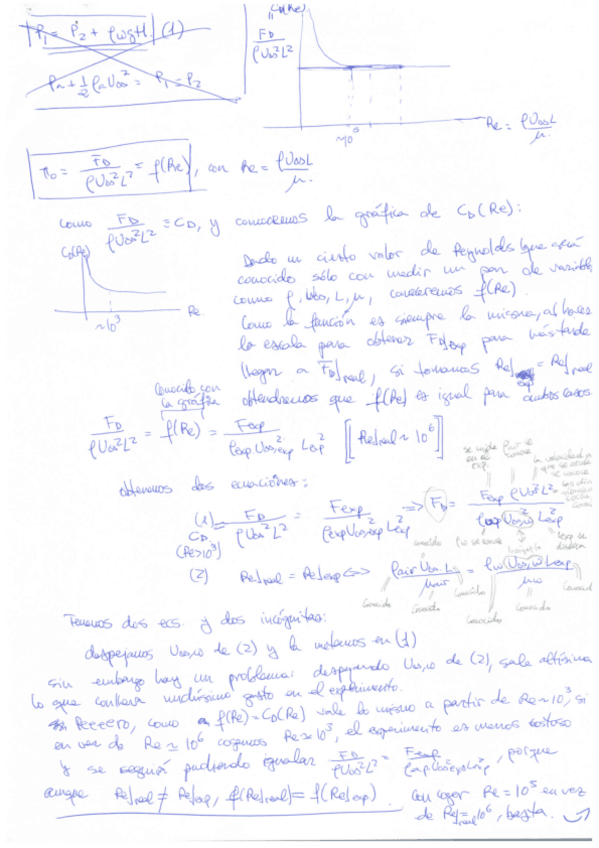 P₁ = P₂ + ρw g H. (1)
Pa + ½ ρa U∞² = P₁ = P₂
C_D(Re)
"
F_D / ρU∞²L²
~10⁶
Re = ρU∞L / μ
π₀ = F_D / ρU∞²L² = f(Re), con Re = ρU∞L / μ.
como F_D / ρU∞²L² ≡ C_D, y conocemos la gráfica de C_D(Re):
C_D(Re)
~10³
Re
Dado un cierto valor de Reynolds (que será
conocido sólo con medir un par de variables
como ρ, U∞, L, μ, conoceremos f(Re).
Como la función es siempre la misma, al hacer
la escala para obtener F_D]exp para más tarde
llegar a F_D]real, si tomamos Re]exp = Re]real
obtendremos que f(Re) es igual para ambos casos
Conocido con
la gráfica
F_D / ρU∞²L² = f(Re) = Fexp / ρexp U∞,exp² Lexp² [[Re]real ~ 10⁶]]
se mide
en el
exp.
ρair se
conoce
la velocidad
que se
se conoce
obtenemos dos ecuaciones:
(1) F_D / ρU∞²L² = Fexp / ρexp U∞exp² Lexp² => F_D = Fexp ρU∞²L² / ρexp U∞,w² Lexp²
C_D
(Re>10³)
conocido
ρw se conoce
incógnita
Lexp se
(2) Re]real = Re]exp <=> ρair U∞ L / μair = ρw U∞,w Lexp / μw
Conocido
Conocida
Conocido
Conocido
Conocido
Conocido
Tenemos dos ecs. y dos incógnitas:
despejamos U∞,w de (2) y la metemos en (1)
sin embargo hay un problema: despejando U∞,w de (2), sale altísima
lo que conlleva muchísimo gasto en el experimento.
Peeeero, como f(Re) = C_D(Re) vale lo mismo a partir de Re ~ 10³, si
en vez de Re ≃ 10⁶ cogemos Re ≃ 10³, el experimento es menos costoso
y se seguirá pudiendo igualar F_D / ρU∞²L² = Fexp / ρexp U∞exp² Lexp², porque
aunque Re]real ≠ Re]exp, f(Re]real) = f(Re]exp).
con coger Re = 10⁵ en vez
de Re]real = 10⁶, basta.